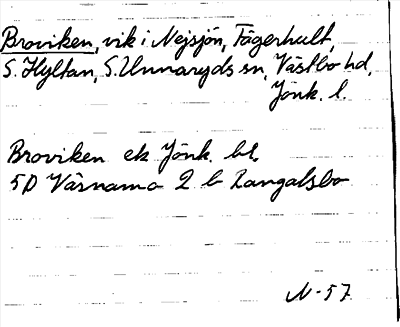 Broviken, vik i Nejsjön, Tågerhult,
S. Hyltan, S. Unnaryds sn, Västbo hd,
Jönk. l.
Broviken ek Jönk. bl.
5D Värnamo 2 b Langalsbo
N-57